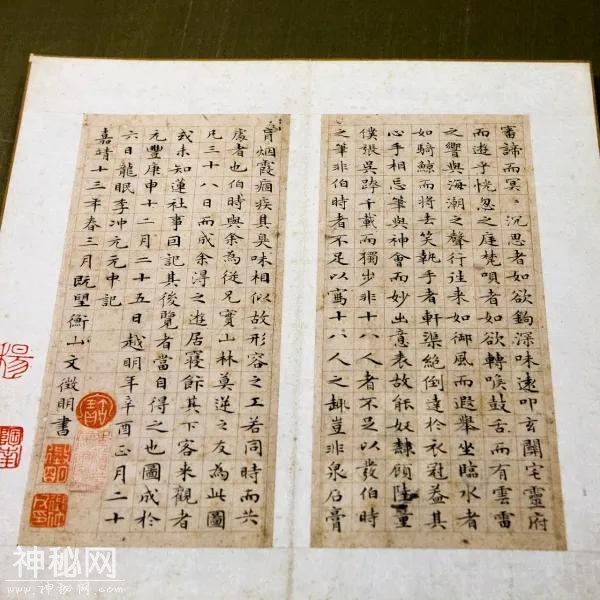 審諦而冥〻沉思者如欲鈎深味遠叩玄關宅靈府
而遊乎恍忽之庭梵唄者如欲轉喉鼓舌而有雲雷
之響與海潮之聲行往来如御風而遐舉坐臨水者
如騎鯨而將去笑執手者軒渠絶倒達於衣冠益其
心手相忘筆與神會而妙出意表故能奴隸顧陸童
僕張吳跨千載而獨步非十八人者不足以發伯時
之筆非伯時者不足以寫十八人之趣豈非泉石膏
肓烟霞痼疾其臭味相似故形容之工若同時而共
處者也伯時與余為從兄實山林莫逆之友為此圖
凡三十八日而成余得之遊居寢飰其下客来觀者
或未知蓮社事因記其後覽者當自得之也圖成於
元豐庚申十二月二十五日越明年辛酉正月二十
六日龍眠李冲元元申記
嘉靖十三年春三月既望衡山文徵明書
楊
神秘网
www.神秘网.com